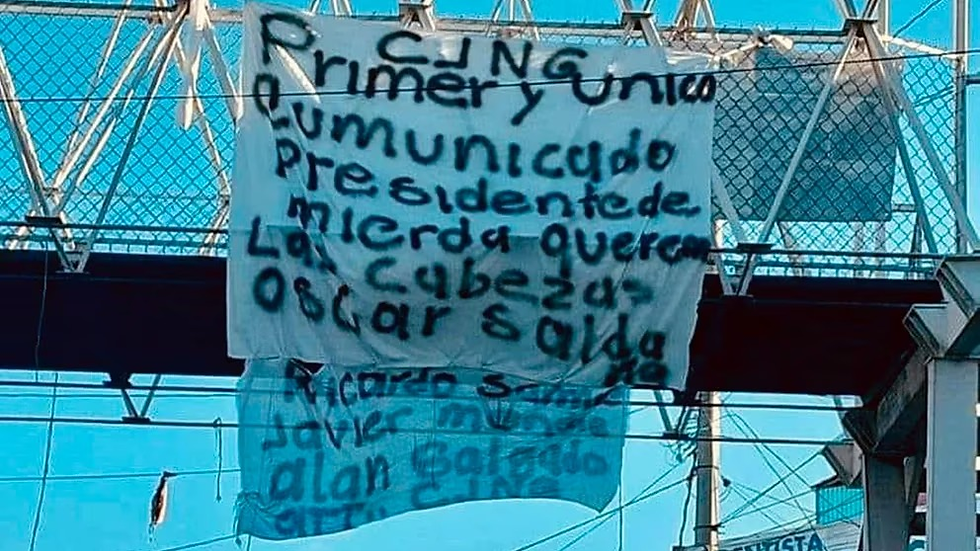 CJNG
Primer y unico
Cumunicado
Presidente de
mierda querem
Las Cabezas
Oscar salda
ña
Ricardo
Javier
alan Salgado
CJNG
DENTISTA